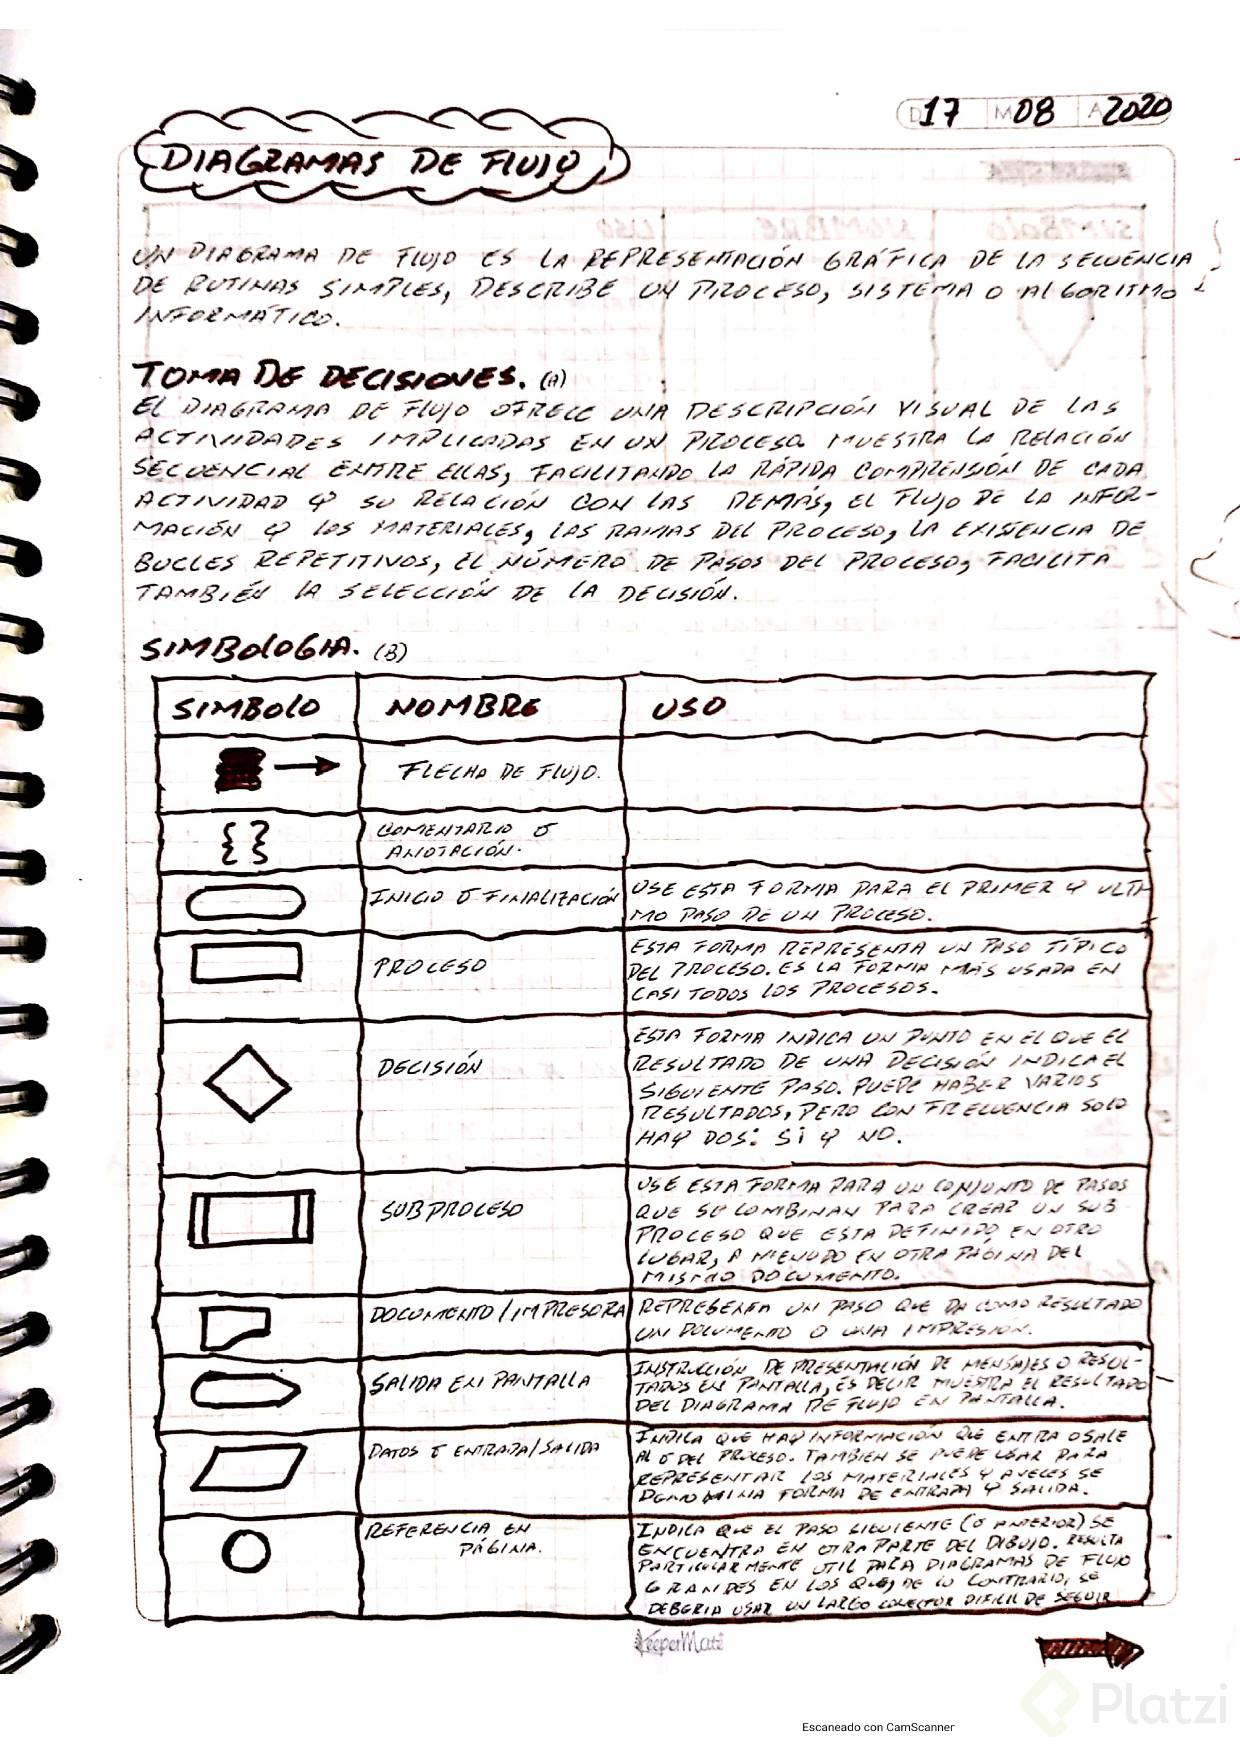 D17 M08 A2020
DIAGRAMAS DE FLUJO
UN DIAGRAMA DE FLUJO ES LA REPRESENTACIÓN GRÁFICA DE LA SECUENCIA
DE RUTINAS SIMPLES, DESCRIBE UN PROCESO, SISTEMA O ALGORITMO
INFORMÁTICO.
TOMA DE DECISIONES. (A)
EL DIAGRAMA DE FLUJO OFRECE UNA DESCRIPCIÓN VISUAL DE LAS
ACTIVIDADES IMPLICADAS EN UN PROCESO. MUESTRA LA RELACIÓN
SECUENCIAL ENTRE ELLAS, FACILITANDO LA RÁPIDA COMPRENSIÓN DE CADA
ACTIVIDAD Y SU RELACIÓN CON LAS DEMÁS, EL FLUJO DE LA INFOR-
MACIÓN Y LOS MATERIALES, LAS RAMAS DEL PROCESO, LA EXISTENCIA DE
BUCLES REPETITIVOS, EL NÚMERO DE PASOS DEL PROCESO, FACILITA
TAMBIÉN LA SELECCIÓN DE LA DECISIÓN.
SIMBOLOGIA. (B)
SIMBOLO NOMBRE USO
FLECHA DE FLUJO.
{ } COMENTARIO Ó
ANOTACIÓN.
INICIO Ó FINALIZACIÓN USE ESTA FORMA PARA EL PRIMER Y ULTI
MO PASO DE UN PROCESO.
PROCESO ESTA FORMA REPRESENTA UN PASO TÍPICO
DEL PROCESO. ES LA FORMA MÁS USADA EN
CASI TODOS LOS PROCESOS.
DECISIÓN ESTA FORMA INDICA UN PUNTO EN EL QUE EL
RESULTADO DE UNA DECISIÓN INDICA EL
SIGUIENTE PASO. PUEDE HABER VARIOS
RESULTADOS, PERO CON FRECUENCIA SOLO
HAY DOS: SI Y NO.
SUBPROCESO USE ESTA FORMA PARA UN CONJUNTO DE PASOS
QUE SE COMBINAN PARA CREAR UN SUB
PROCESO QUE ESTA DEFINIDO EN OTRO
LUGAR, A MENUDO EN OTRA PÁGINA DEL
MISMO DOCUMENTO.
DOCUMENTO/IMPRESORA REPRESENTA UN PASO QUE DA COMO RESULTADO
UN DOCUMENTO O UNA IMPRESIÓN.
SALIDA EN PANTALLA INSTRUCCIÓN DE PRESENTACIÓN DE MENSAJES O RESUL-
TADOS EN PANTALLA, ES DECIR MUESTRA EL RESULTADO
DEL DIAGRAMA DE FLUJO EN PANTALLA.
DATOS Ó ENTRADA/SALIDA INDICA QUE HAY INFORMACIÓN QUE ENTRA O SALE
AL Ó DEL PROCESO. TAMBIÉN SE PUEDE USAR PARA
REPRESENTAR LOS MATERIALES Y AVECES SE
DENOMINA FORMA DE ENTRADA Y SALIDA.
REFERENCIA EN
PÁGINA.
INDICA QUE EL PASO SIGUIENTE (Ó ANTERIOR) SE
ENCUENTRA EN OTRA PARTE DEL DIBUJO. RESULTA
PARTICULARMENTE UTIL PARA DIAGRAMAS DE FLUJO
GRANDES EN LOS QUE, DE LO CONTRARIO, SE
DEBERIA USAR UN LARGO CONECTOR DIFICIL DE SEGUIR
KeeperMate
Platzi
Escaneado con CamScanner